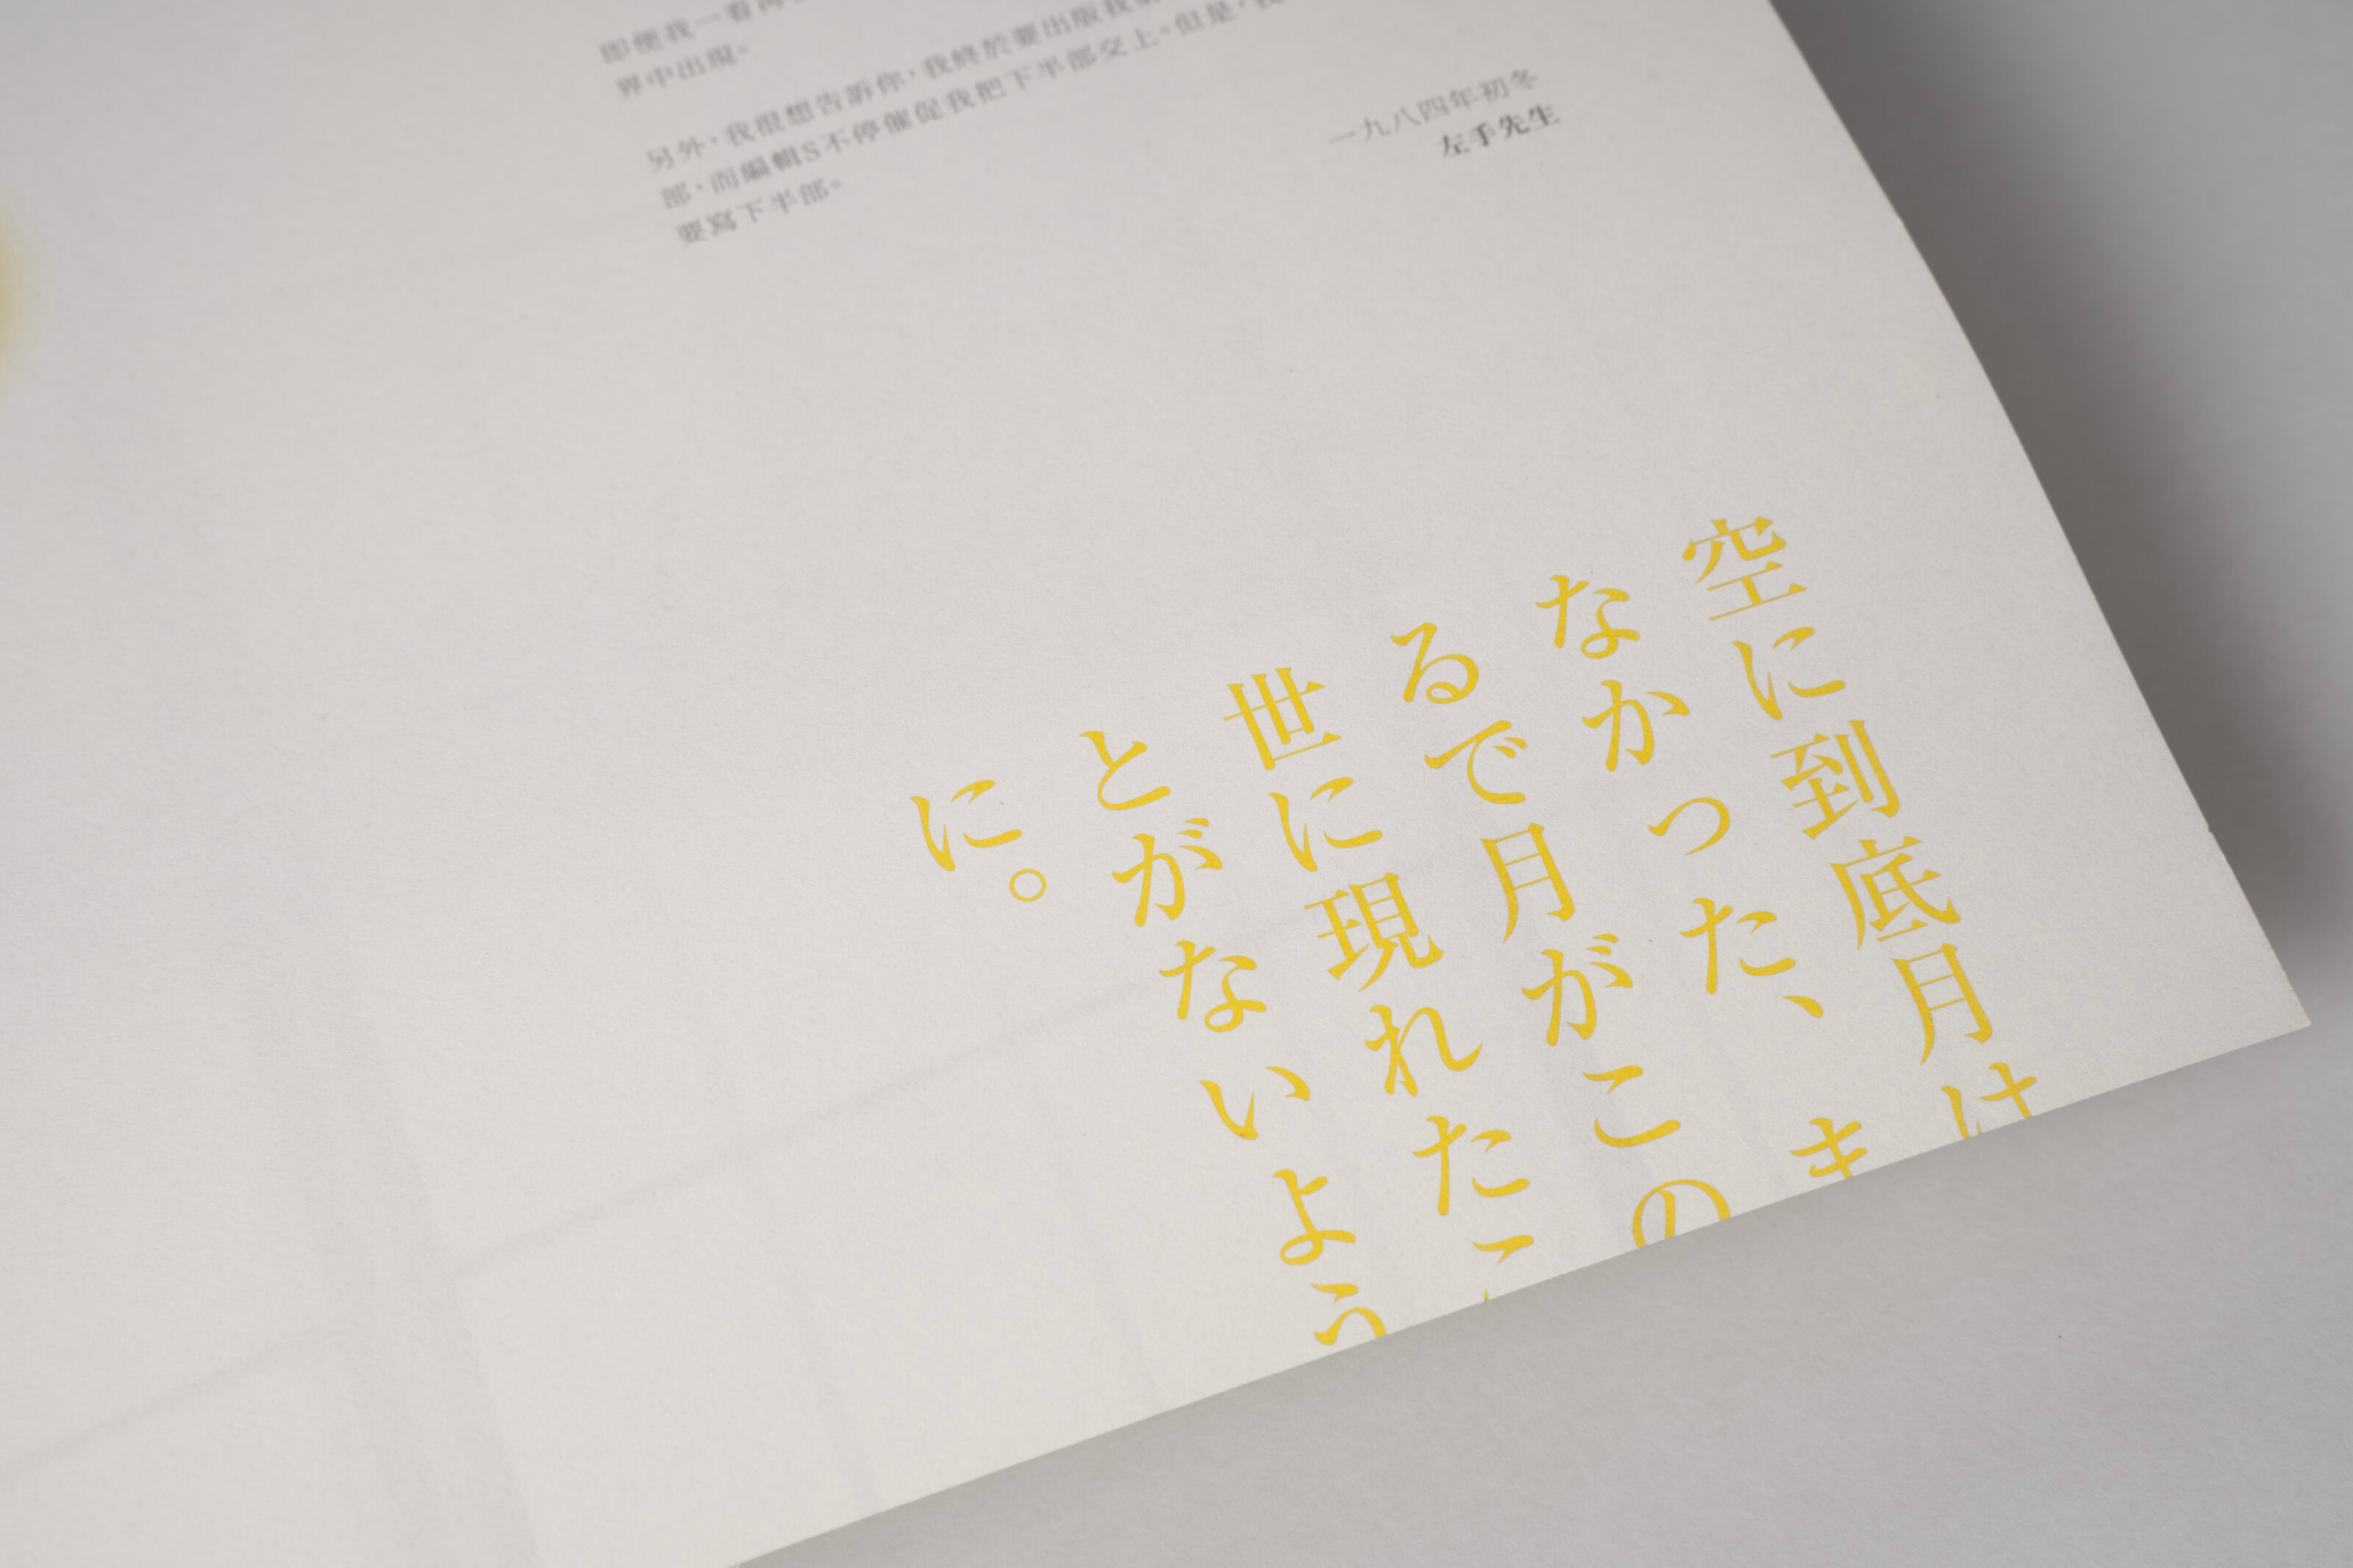 即便我一看再
界中出現。
另外，我很想告訴你，我終於要出版我
部，而編輯S不停催促我把下半部交上。但是，我
要寫下半部。
一九八四年初冬
左手先生
空に到底月は
なかった、ま
るで月がこの
世に現れたこ
とがないよう
に。